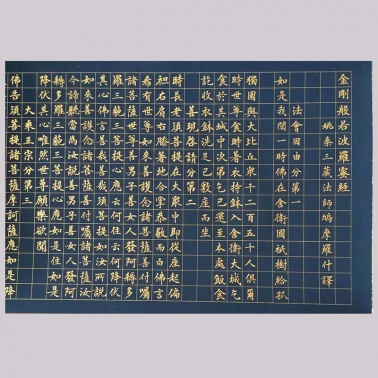 金剛般若波羅蜜經
姚秦三藏法師鳩摩羅什譯
法會因由分第一
如是我聞一時佛在舍衛國祇樹給孤
獨園與大比丘眾千二百五十人俱爾
時世尊食時著衣持鉢入舍衛大城乞
食於其城中次第乞已還至本處飯食
訖收衣鉢洗足已敷座而坐
善現啟請分第二
時長老須菩提在大眾中即從座起偏
袒右肩右膝著地合掌恭敬而白佛言
希有世尊如來善護念諸菩薩善付囑
諸菩薩世尊善男子善女人發阿耨多
羅三藐三菩提心應云何住云何降伏
其心佛言善哉善哉須菩提如汝所說
如來善護念諸菩薩善付囑諸菩薩汝
今諦聽當為汝說善男子善女人發阿
耨多羅三藐三菩提心應如是住如是
降伏其心唯然世尊願樂欲聞
大乘正宗分第三
佛告須菩提諸菩薩摩訶薩應如是降